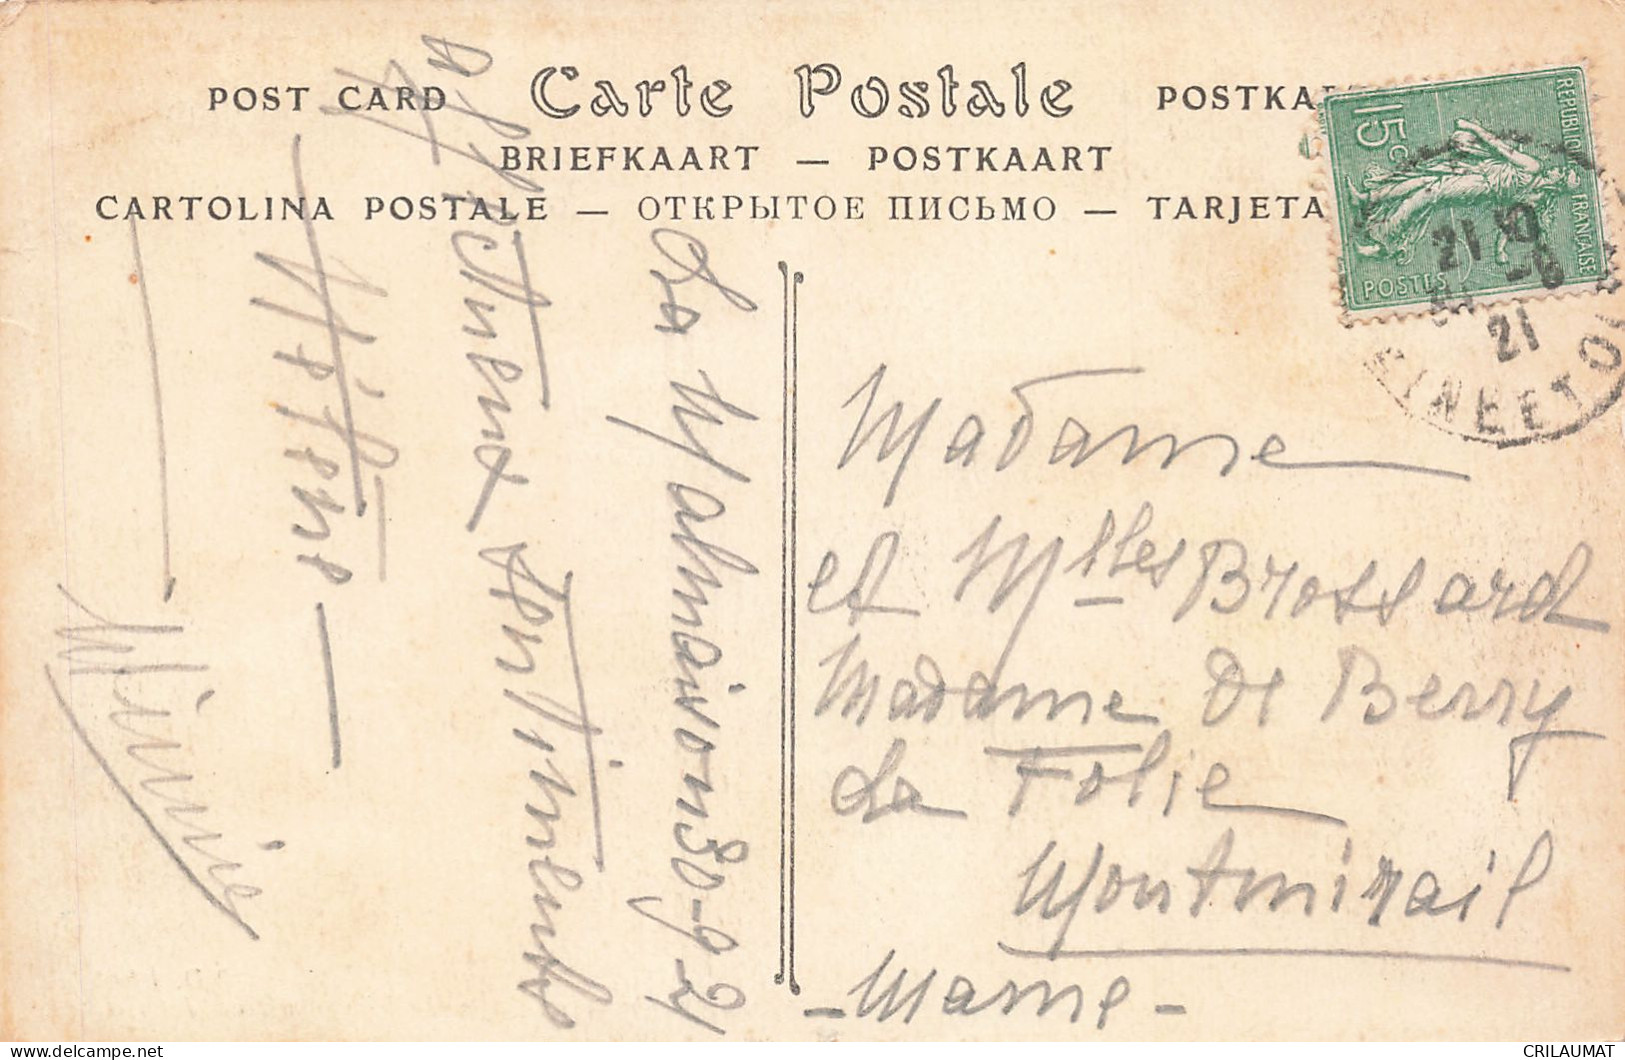 POST CARD Carte Postale POSTKA
BRIEFKAART — POSTKAART
CARTOLINA POSTALE — ОТКРЫТОЕ ПИСЬМО — TARJETA
REPUBLIQUE FRANÇAISE
15c
POSTES
21
21
La Malmaison 30-9-21
affectueux sentiments
Madame
et Mlles Brossard
Madame De Berry
La Folie
Montmirail
- Marne -
CRILAUMAT